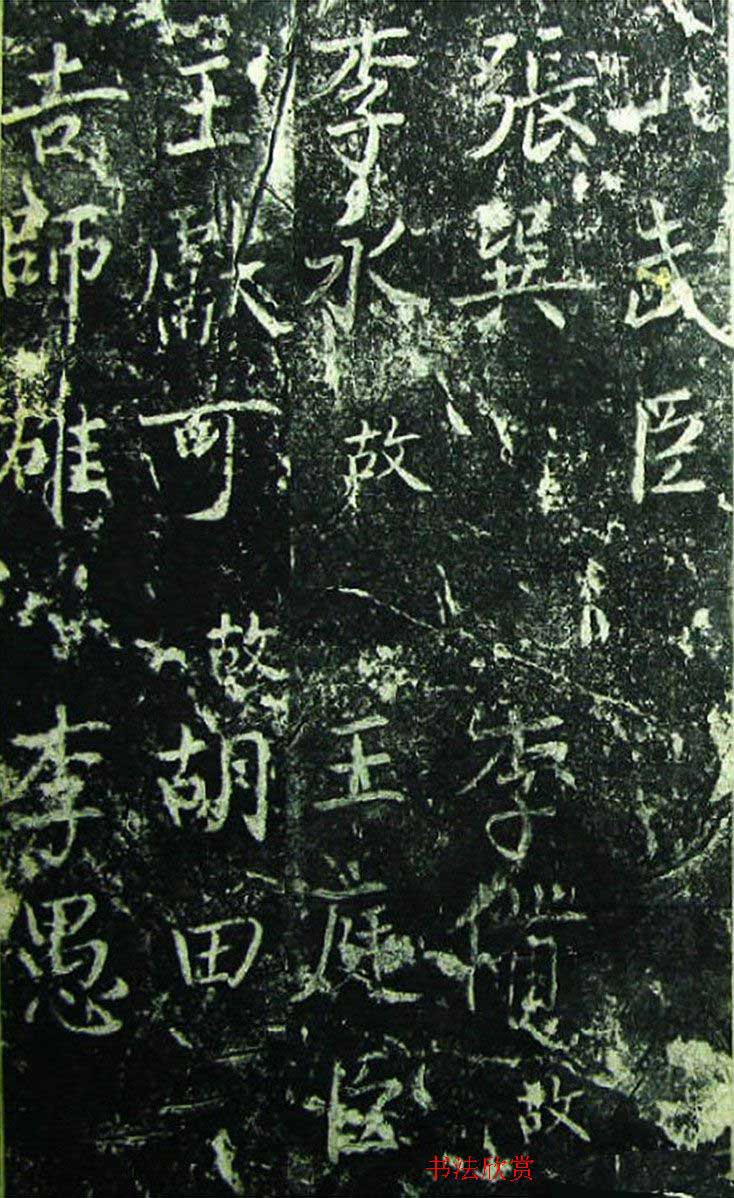 武臣
張巽 李備故
李永故 王庭臣
王獻可故 胡田
吉師雄 李愚
书法欣赏